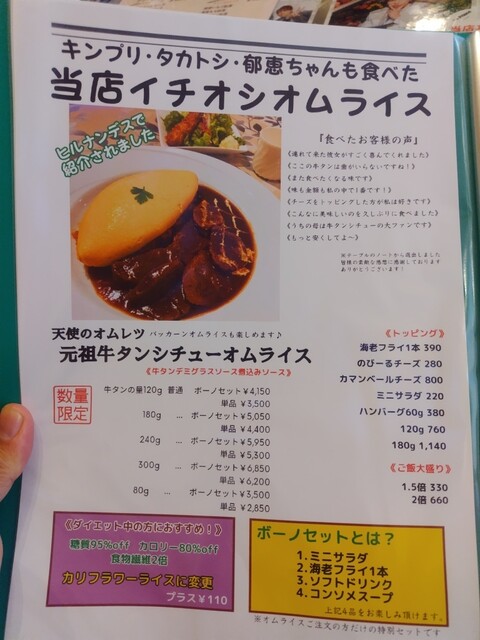 キンプリ・タカトシ・郁恵ちゃんも食べた
当店イチオシオムライス
ヒルナンデスで
紹介されました
『食べたお客様の声』
《連れて来た彼女がすごく喜んでくれました》
《ここの牛タンは歯がいらないですね！》
《また食べたくなる味です》
《味も金額も私の中で1番です！》
《チーズをトッピングした方が私は好きです》
《こんなに美味しいのを久しぶりに食べました》
《うちの母は牛タンシチューの大ファンです》
《もっと安くしてよ～》
※テーブルのノートから抜出しました
皆様の素敵な感想に感謝しております
ありがとうございます！
天使のオムレツ パッカーンオムライスも楽しめます♪
元祖牛タンシチューオムライス
《牛タンデミグラスソース煮込みソース》
数量
限定
牛タンの量120g 普通 ボーノセット￥4,150
単品 ￥3,500
180g … ボーノセット￥5,050
単品 ￥4,400
240g … ボーノセット￥5,950
単品 ￥5,300
300g … ボーノセット￥6,850
単品 ￥6,200
80g … ボーノセット￥3,500
単品 ￥2,850
《トッピング》
海老フライ1本 390
のびーるチーズ 280
カマンベールチーズ 800
ミニサラダ 220
ハンバーグ60g 380
120g 760
180g 1,140
《ご飯大盛り》
1.5倍 330
2倍 660
《ダイエット中の方におすすめ！》
糖質95%off カロリー80%off
食物繊維2倍
カリフラワーライスに変更
プラス￥110
ボーノセットとは？
1.ミニサラダ
2.海老フライ1本
3.ソフトドリンク
4.コンソメスープ
上記4品をお楽しみ頂けます。
※オムライスご注文の方だけの特別セットです